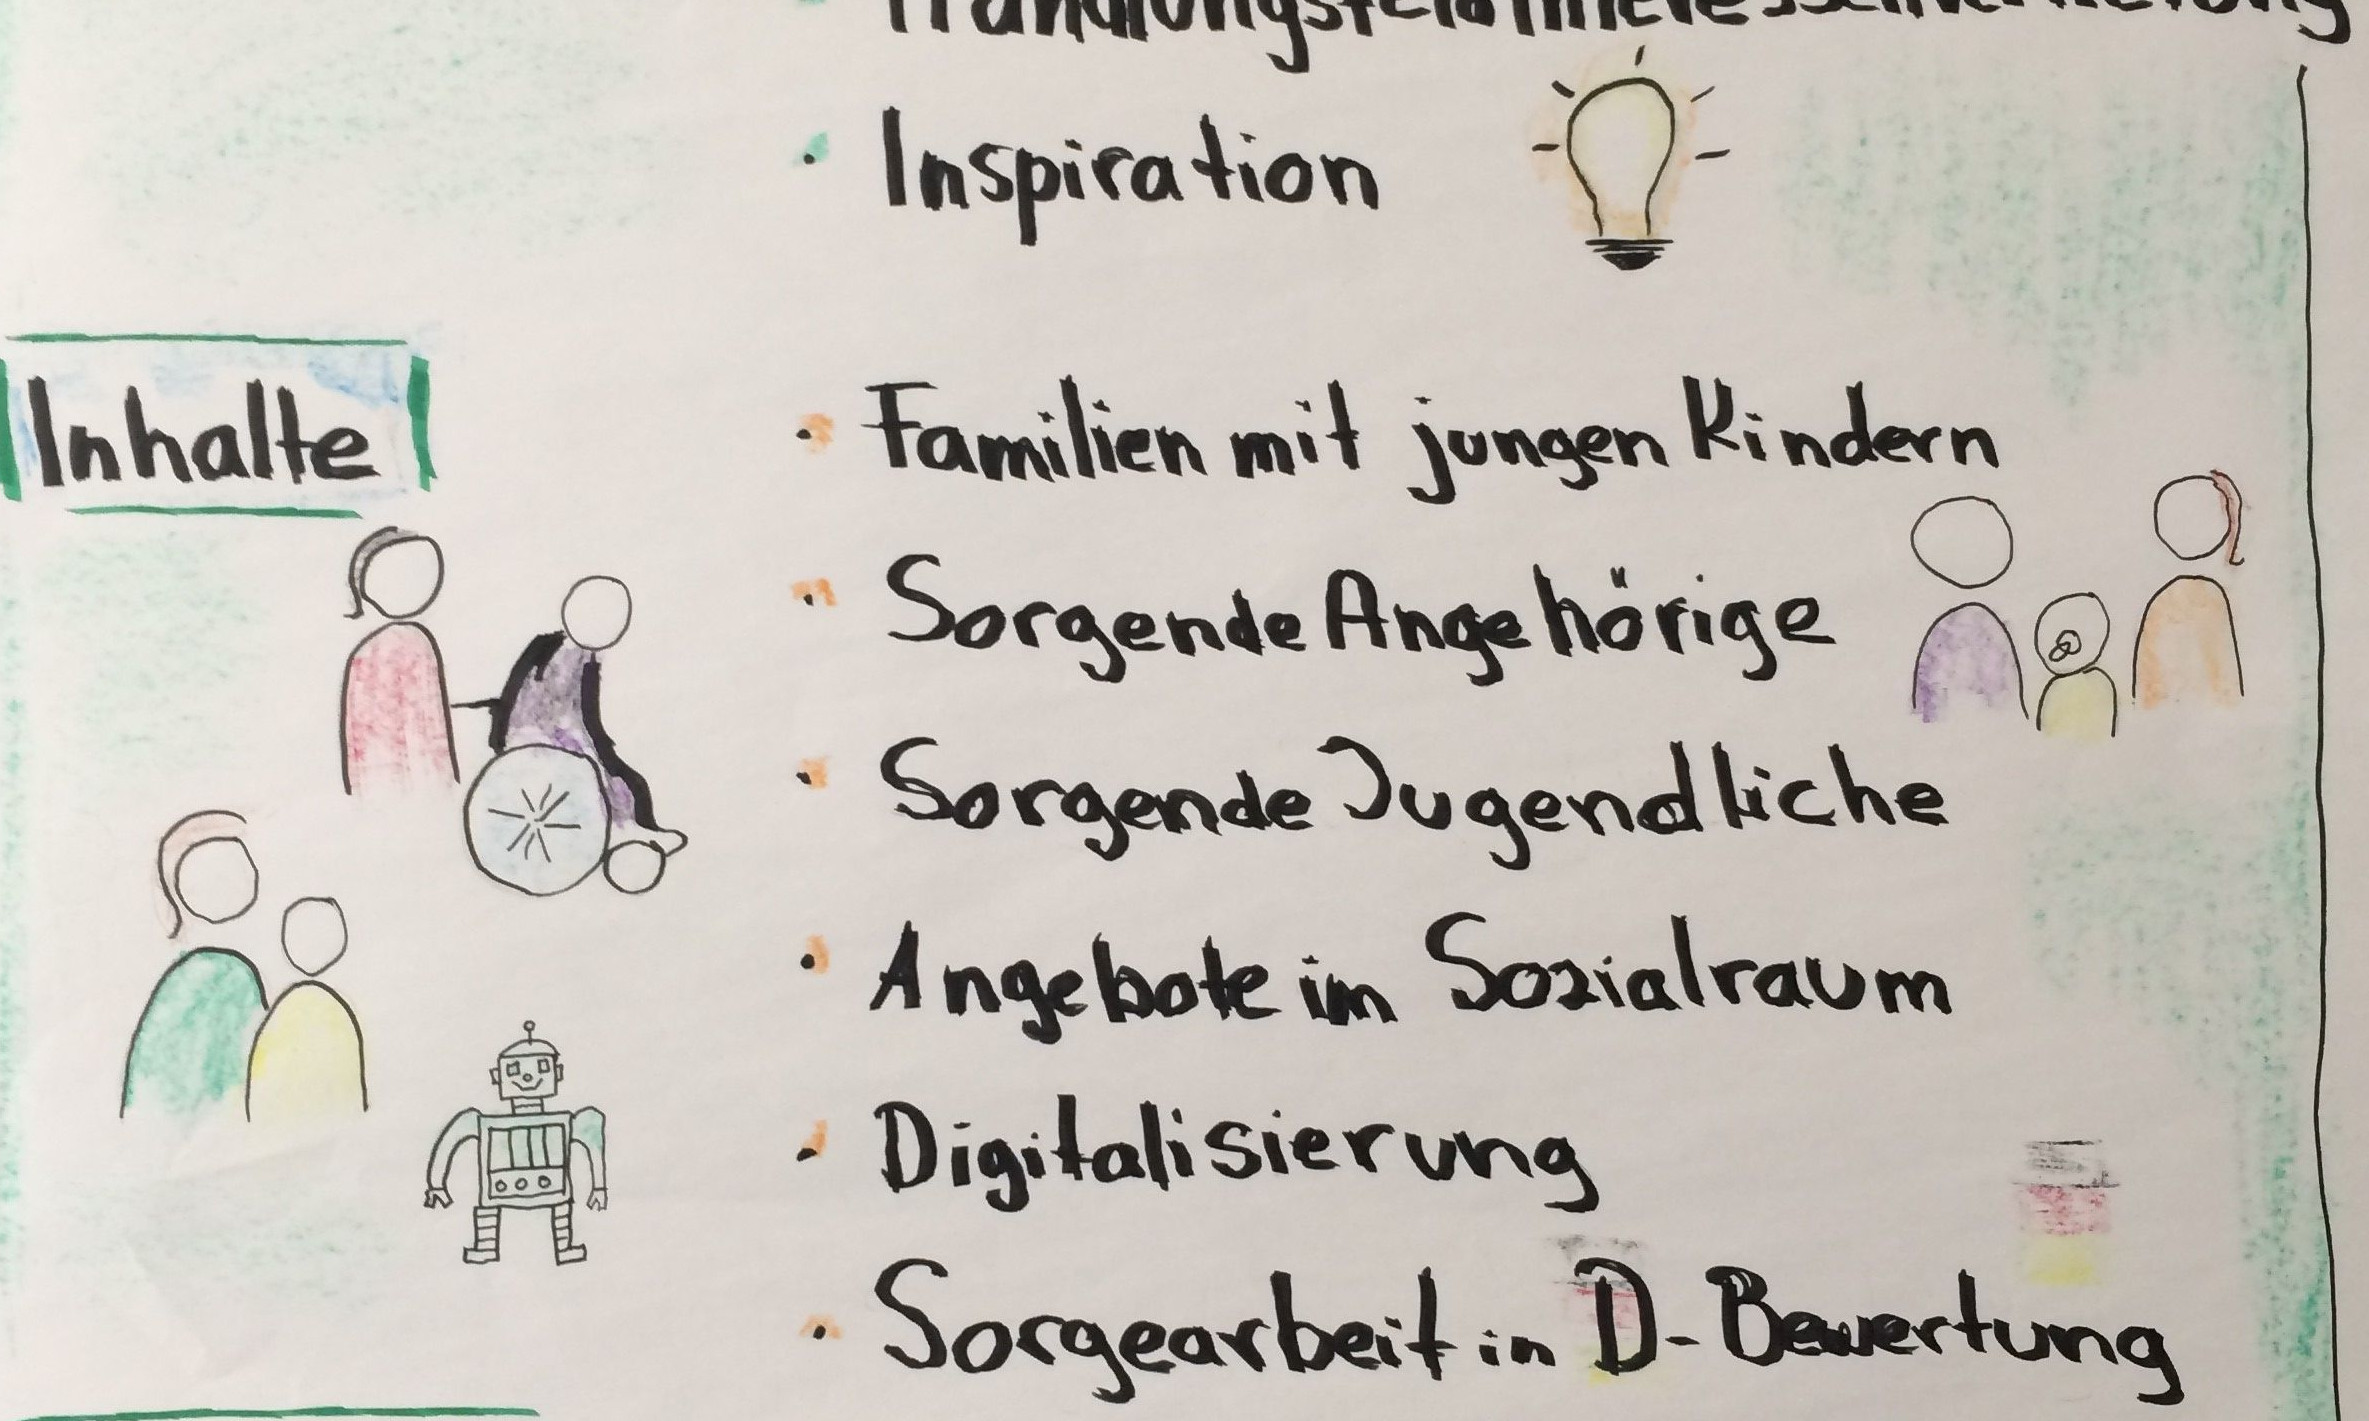 • Inspiration
Inhalte
• Familien mit jungen Kindern
• Sorgende Angehörige
• Sorgende Jugendliche
• Angebote im Sozialraum
• Digitalisierung
• Sorgearbeit in D-Bewertung